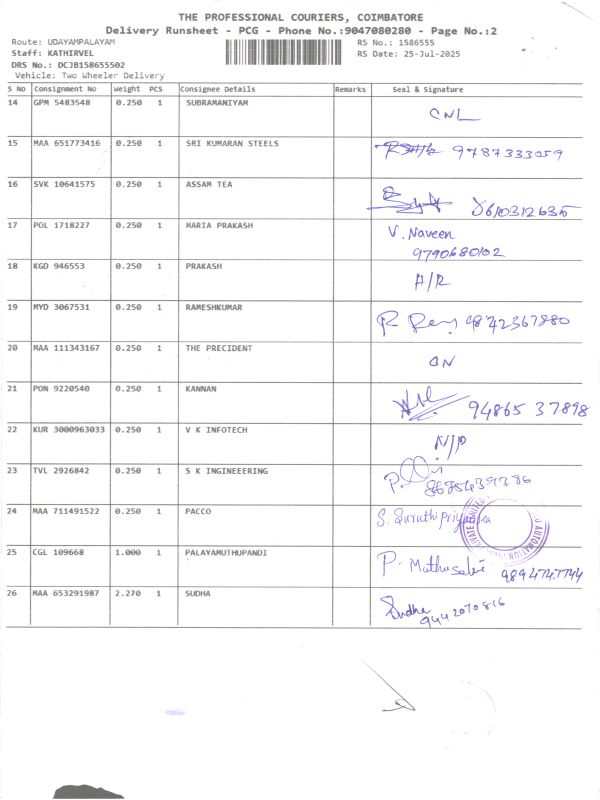 THE PROFESSIONAL COURIERS, COIMBATORE
Delivery Runsheet - PCG - Phone No.:9047080280 - Page No.:2
Route: UDAYAMPALAYAM RS No.: 1586555
Staff: KATHIRVEL RS Date: 25-Jul-2025
DRS No.: DCJB158655502
Vehicle: Two Wheeler Delivery
S No Consignment No Weight PCS Consignee Details Remarks Seal & Signature
14 GPM 5483548 0.250 1 SUBRAMANIYAM CNL
15 MAA 651773416 0.250 1 SRI KUMARAN STEELS 9787333059
16 SVK 10641575 0.250 1 ASSAM TEA
17 POL 1718227 0.250 1 MARIA PRAKASH V. Naveen
9790680102
18 KGD 946553 0.250 1 PRAKASH A/R
19 MYD 3067531 0.250 1 RAMESHKUMAR 9842367880
20 MAA 111343167 0.250 1 THE PRECIDENT ON
21 PON 9220540 0.250 1 KANNAN 94865 37898
22 KUR 3000963033 0.250 1 V K INFOTECH
23 TVL 2926842 0.250 1 S K INGINEEERING
24 MAA 711491522 0.250 1 PACCO S. Suruthipriyanka AUTOMATION PRIVATE LIMITED
25 CGL 109668 1.000 1 PALAYAMUTHUPANDI P. Muthuselvi
26 MAA 653291987 2.270 1 SUDHA Sudha
9442070816